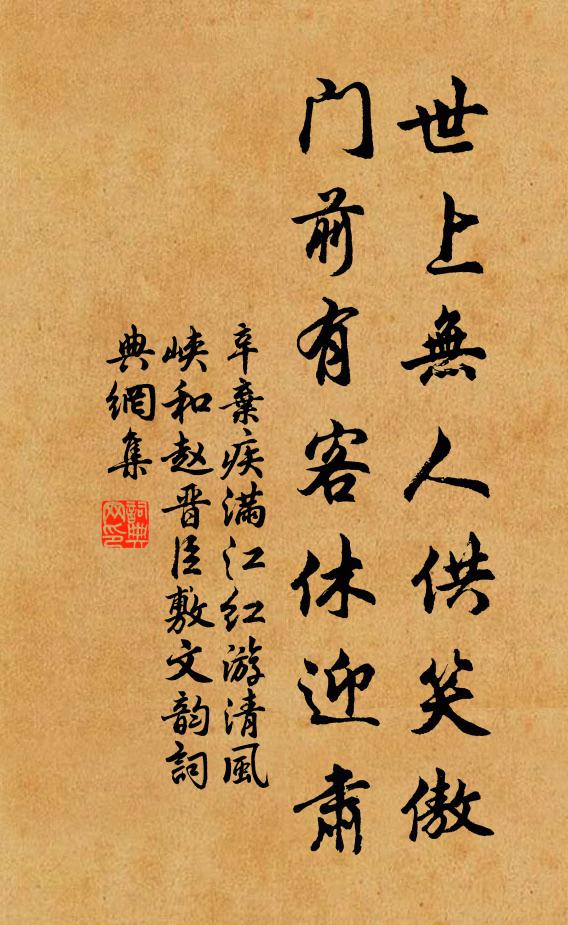 世上無人供笑傲
门前有客休迎肅
辛棄疾满江红游清風
峡和赵晋臣敷文韵詞
典網集
詞典
网印